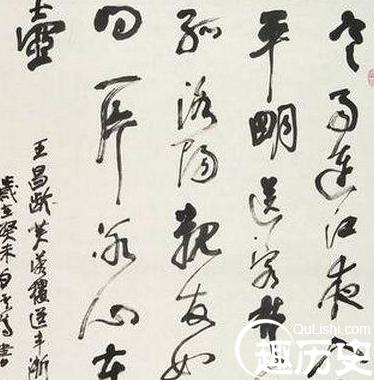 寒雨連江夜
平明送客楚
孤洛陽親友如
问一片冰心在
壺
王昌龄芙蓉樓送辛渐
歲在癸未白書
QuLiShi.com
趣历史